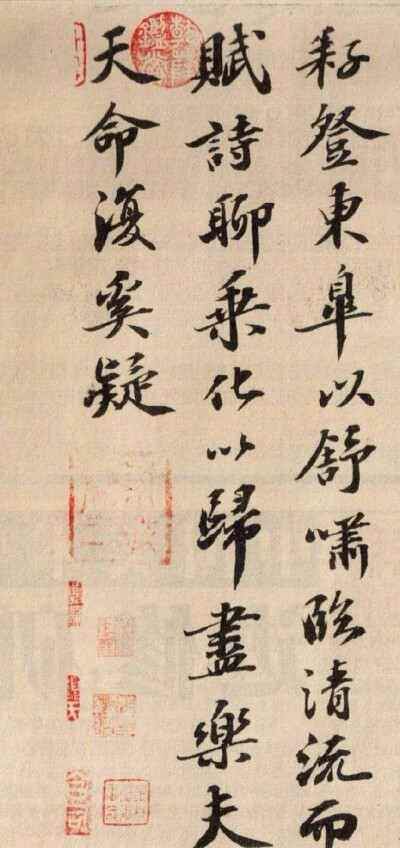 耔登東皐以舒嘯臨清流而
賦詩聊乗化以歸盡樂夫
天命復奚疑